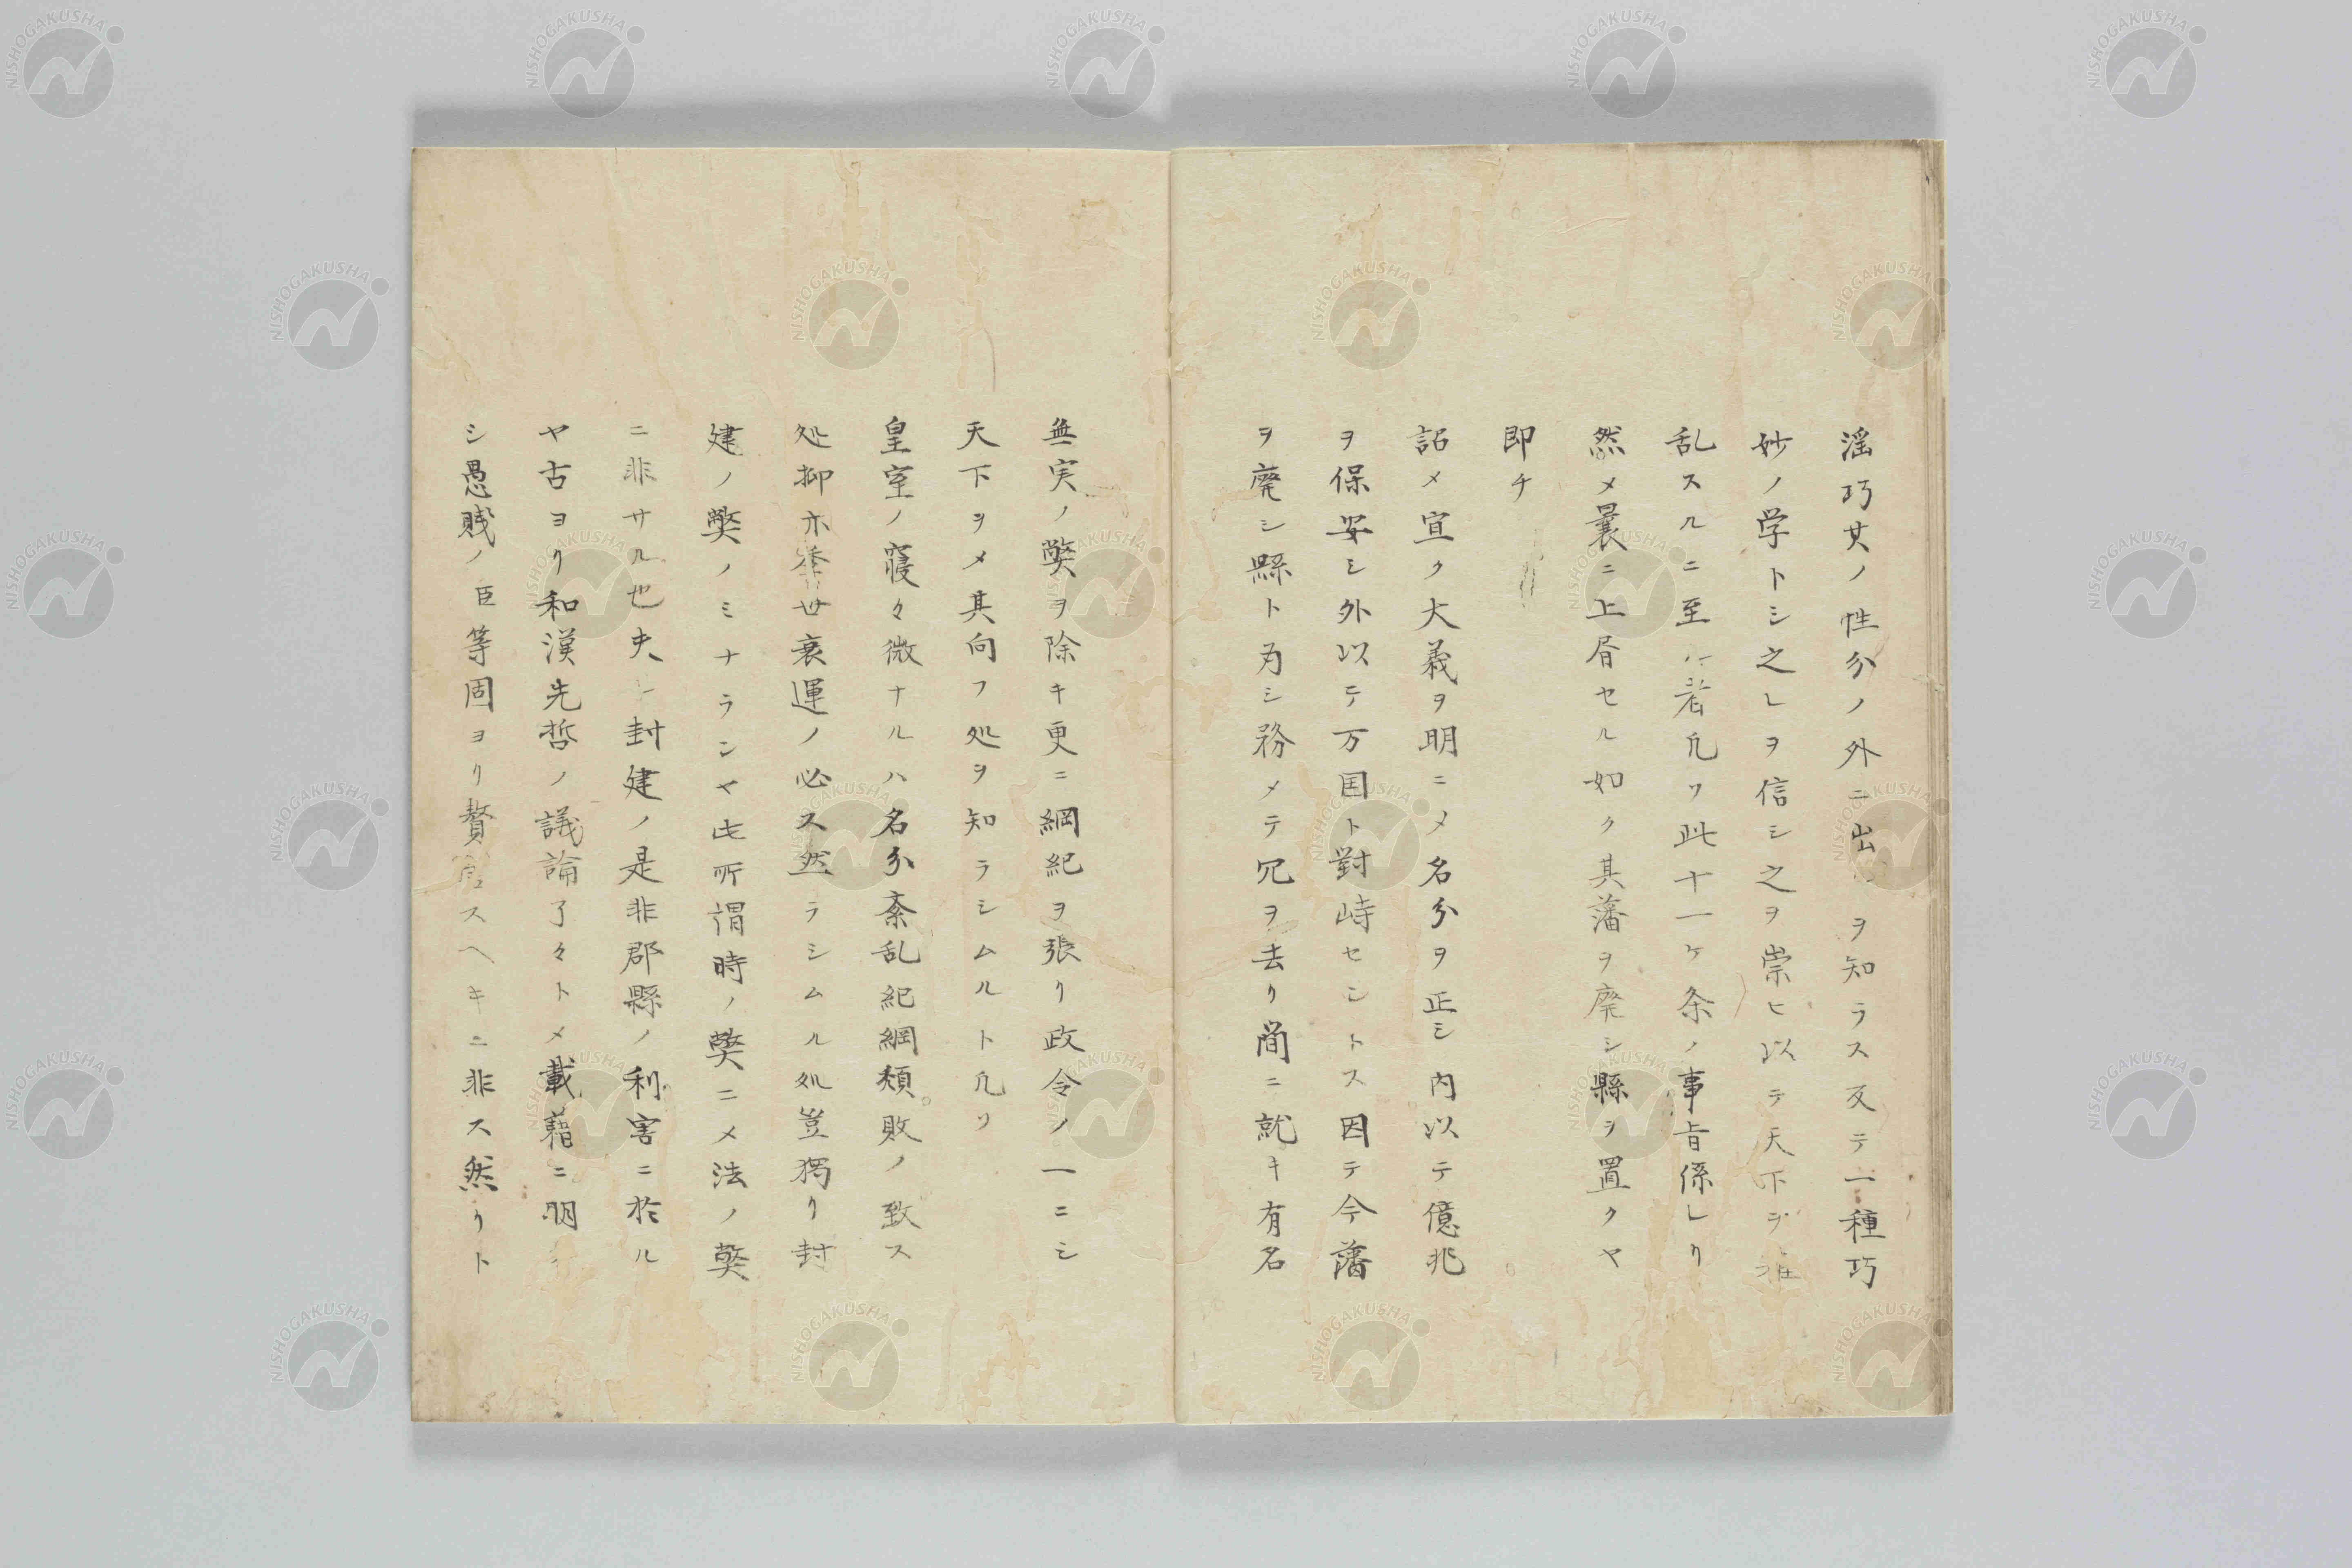 淫巧其ノ性分ノ外ニ出ヲ知ラス反テ一種巧
妙ノ学トシ之レヲ信シ之ヲ崇ヒ以テ天下ヲ
乱スルニ至ハ者凢ソ此十一ケ条ノ事旨係レリ
然〆曩ニ上脣セル如ク其藩ヲ廃シ縣ヲ置クヤ
即チ
詔〆宣ク大義ヲ明ニ〆名分ヲ正シ内以テ億兆
ヲ保安シ外以テ万国ト對峙セントス因テ今藩
ヲ廃シ縣ト为シ務メテ冗ヲ去リ簡ニ就キ有名
無実ノ弊ヲ除キ更ニ綱紀ヲ張リ政令ノ一ニシ
天下ヲ〆其向フ処ヲ知ラシムルト凢ソ
皇室ノ寝々微ナルハ名分紊乱紀綱頽敗ノ致ス
処抑亦季世衰運ノ必ス然ラシムル処豈獨リ封
建ノ弊ノミナランヤ此所謂時ノ弊ニ〆法ノ弊
ニ非サル也夫レ封建ノ是非郡縣ノ利害ニ於ル
ヤ古ヨリ和漢先哲ノ議論了々ト〆載藉ニ明
シ愚賤ノ臣等固ヨリ贅言スヘキニ非ス然リト
NISHOGAKUSHA